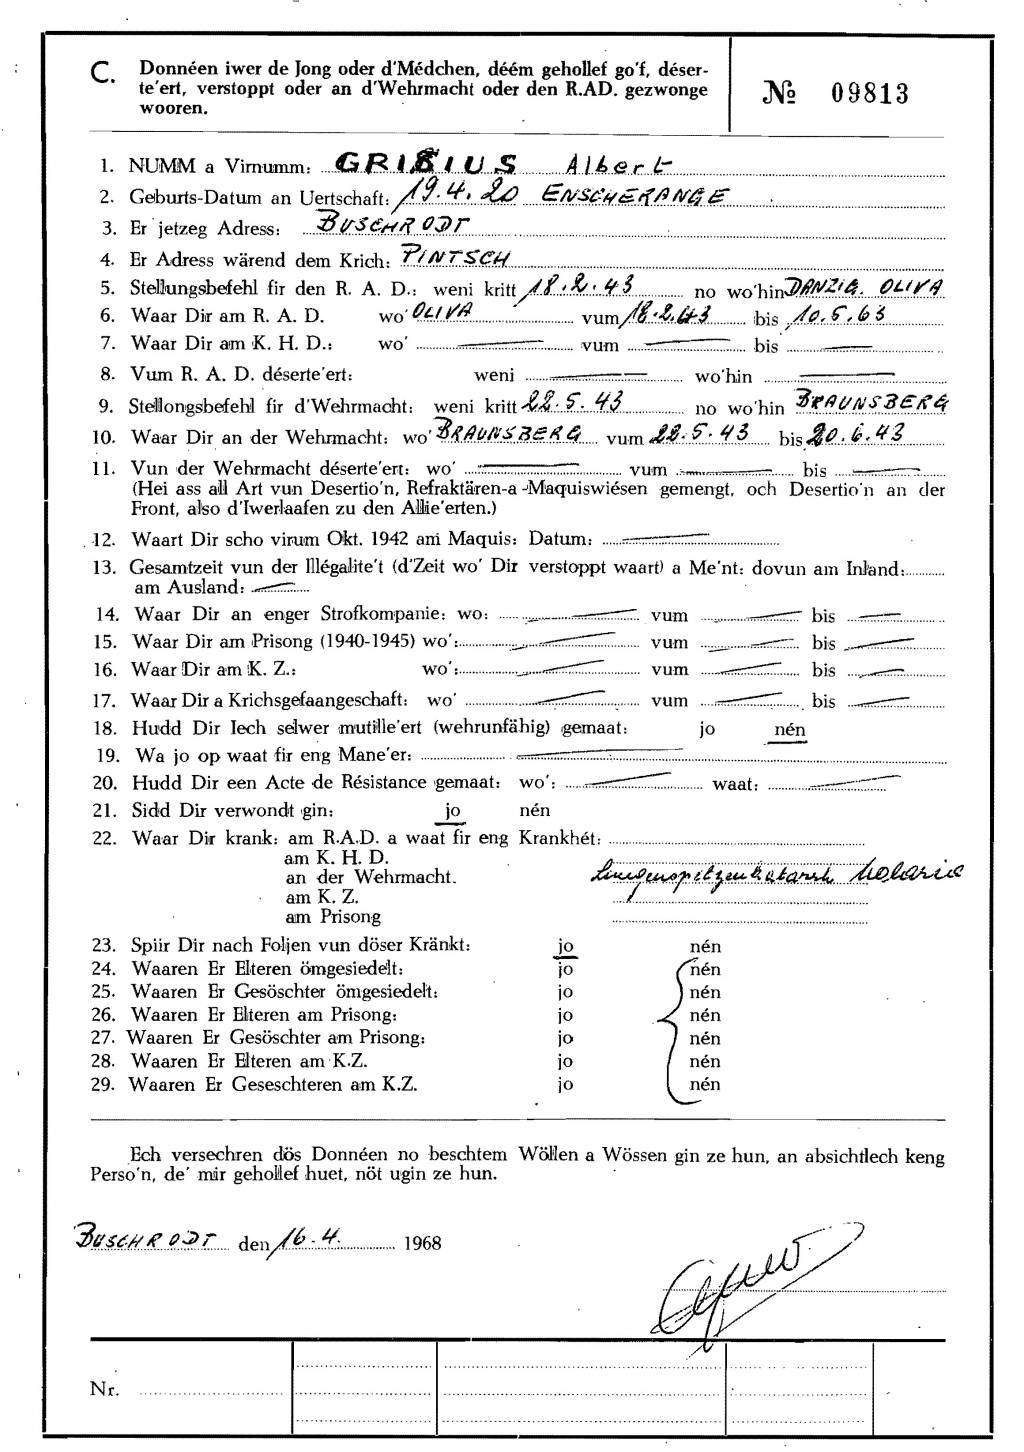 C. Donnéen iwer de Jong oder d'Médchen, déém gehollef go'f, déser-
te'ert, verstoppt oder an d'Wehrmacht oder den R.AD. gezwonge
wooren.
№ 09813
1. NUMM a Virnumm: GRIBIUS Albert
2. Geburts-Datum an Uertschaft: 19.4.20 ENSCHERANGE
3. Er jetzeg Adress: BUSCHRODT
4. Er Adress wärend dem Krich: PINTSCH
5. Stellungsbefehl fir den R. A. D.: weni kritt 18.2.43 no wo'hin DANZIG. OLIVA
6. Waar Dir am R. A. D. wo' OLIVA vum 18.2.43 bis 10.5.63
7. Waar Dir am K. H. D.: wo' vum bis
8. Vum R. A. D. déserte'ert: weni wo'hin
9. Stellongsbefehl fir d'Wehrmacht: weni kritt 22.5.43 no wo'hin BRAUNSBERG
10. Waar Dir an der Wehrmacht: wo' BRAUNSBERG vum 22.5.43 bis 20.6.43
11. Vun der Wehrmacht déserte'ert: wo' vum bis
(Hei ass all Art vun Desertio'n, Refraktären-a-Maquiswiésen gemengt, och Desertio'n an der
Front, also d'Iwerlaafen zu den Allie'erten.)
12. Waart Dir scho virum Okt. 1942 am Maquis: Datum:
13. Gesamtzeit vun der Illégalite't (d'Zeit wo' Dir verstoppt waart) a Me'nt: dovun am Inland:
am Ausland:
14. Waar Dir an enger Strofkompanie: wo: vum bis
15. Waar Dir am Prisong (1940-1945) wo': vum bis
16. Waar Dir am K. Z.: wo': vum bis
17. Waar Dir a Krichsgefaangeschaft: wo' vum bis
18. Hudd Dir Iech selwer mutille'ert (wehrunfähig) gemaat: jo nén
19. Wa jo op waat fir eng Mane'er:
20. Hudd Dir een Acte de Résistance gemaat: wo': waat:
21. Sidd Dir verwondt gin: jo nén
22. Waar Dir krank: am R.A.D. a waat fir eng Krankhét:
am K. H. D.
an der Wehrmacht. Lungenspitzenkatarrh Malaria
am K. Z.
am Prisong
23. Spiir Dir nach Foljen vun döser Kränkt: jo nén
24. Waaren Er Elteren ömgesiedelt: jo nén
25. Waaren Er Gesöschter ömgesiedelt: jo nén
26. Waaren Er Elteren am Prisong: jo nén
27. Waaren Er Gesöschter am Prisong: jo nén
28. Waaren Er Elteren am K.Z. jo nén
29. Waaren Er Geseschteren am K.Z. jo nén
Ech versechren dös Donnéen no beschtem Wöllen a Wössen gin ze hun, an absichtlech keng
Perso'n, de' mir gehollef huet, nöt ugin ze hun.
BUSCHRODT den 16.4. 1968
Nr.